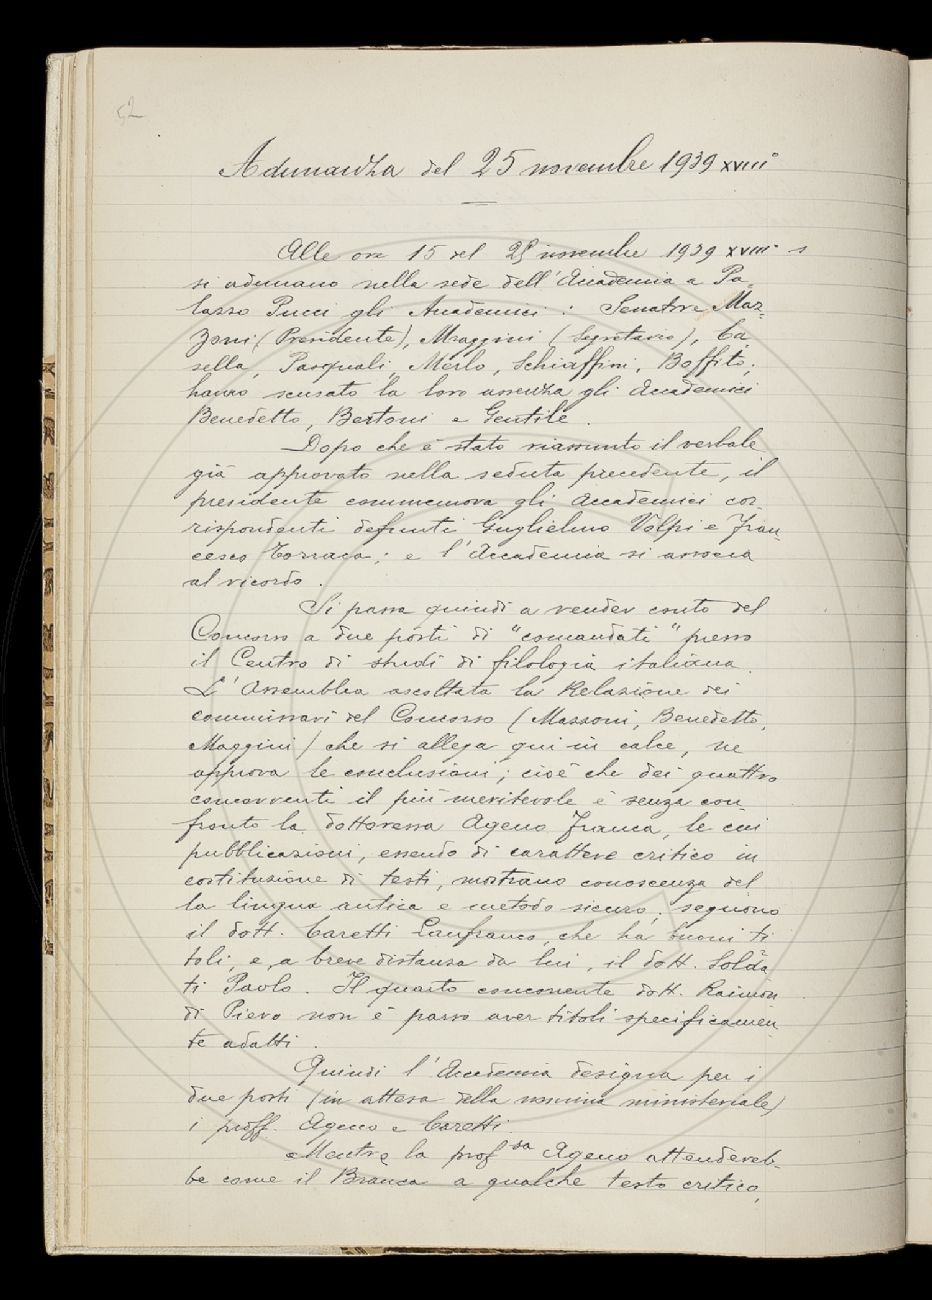 52
Adunanza del 25 novembre 1939 XVIII°
Alle ore 15 del 25 novembre 1939 XVIII° s
si adunano nella sede dell'Accademia a Pa-
lazzo Pucci gli Accademici: Senatore Maz-
zoni (Presidente), Maggini (Segretario), Ca
sella, Pasquali, Merlo, Schiaffini, Boffito;
hanno scusato la loro assenza gli Accademici
Benedetto, Bertoni e Gentile.
Dopo che è stato riassunto il verbale
già approvato nella seduta precedente, il
presidente commemora gli accademici cor
rispondenti defunti Guglielmo Volpi e Fran-
cesco Torraca; e l'Accademia si associa
al ricordo.
Si passa quindi a render conto del
Concorso a due posti di "comandati" presso
il Centro di studi di filologia italiana
L'Assemblea ascoltata la Relazione dei
commissari del Concorso (Mazzoni, Benedetto,
Maggini) che si allega qui in calce, ne
approva le conclusioni; cioè che dei quattro
concorrenti il più meritevole è senza con
fronto la dottoressa Ageno Franca, le cui
pubblicazioni, essendo di carattere critico in
costituzione di testi, mostrano conoscenza del
la lingua antica e metodo sicuro; seguono
il dott. Caretti Lanfranco, che ha buoni ti
toli, e, a breve distanza da lui, il dott. Solda
ti Paolo. Il quarto concorrente dott. Raimon
di Piero non è parso aver titoli specificamen
te adatti.
Quindi l'Accademia designa per i
due posti (in attesa della nomina ministeriale)
i proff. Ageno e Caretti
Mentre la prof.ssa Ageno attendereb-
be come il Branca a qualche testo critico,